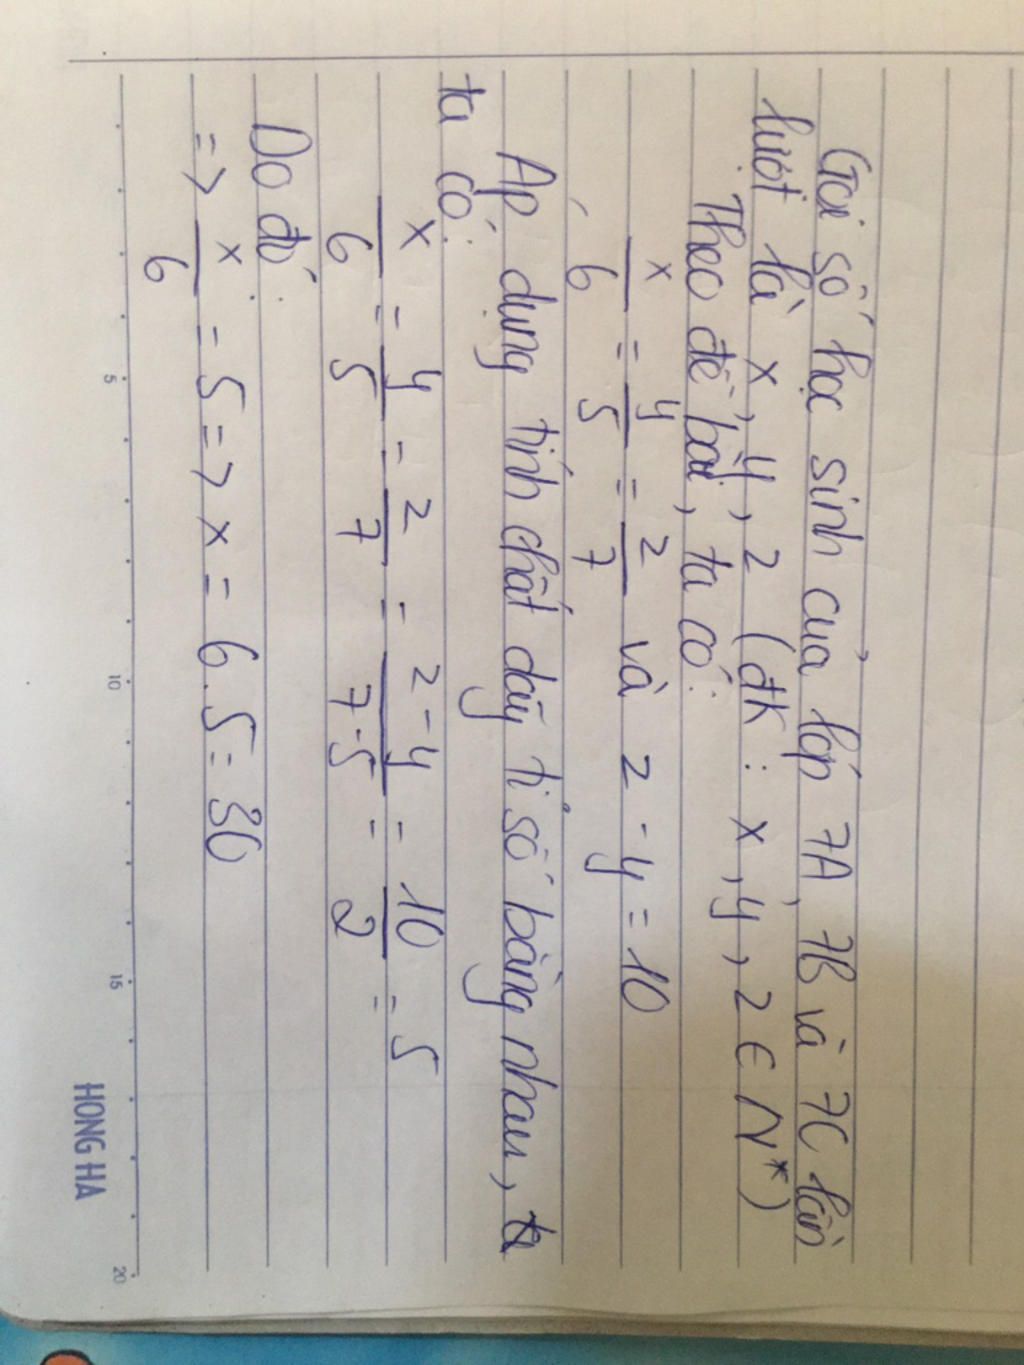 Gọi số học sinh của lớp 7A, 7B và 7C lần
lượt là x, y, z (đk: x, y, z ∈ N*)
Theo đề bài, ta có:
x/6 = y/5 = z/7 và z - y = 10
Áp dụng tính chất dãy tỉ số bằng nhau,
ta có:
x/6 = y/5 = z/7 = z-y/7-5 = 10/2 = 5
Do đó:
=> x/6 = 5 => x = 6.5 = 30
5 10 15 20
HONG HA